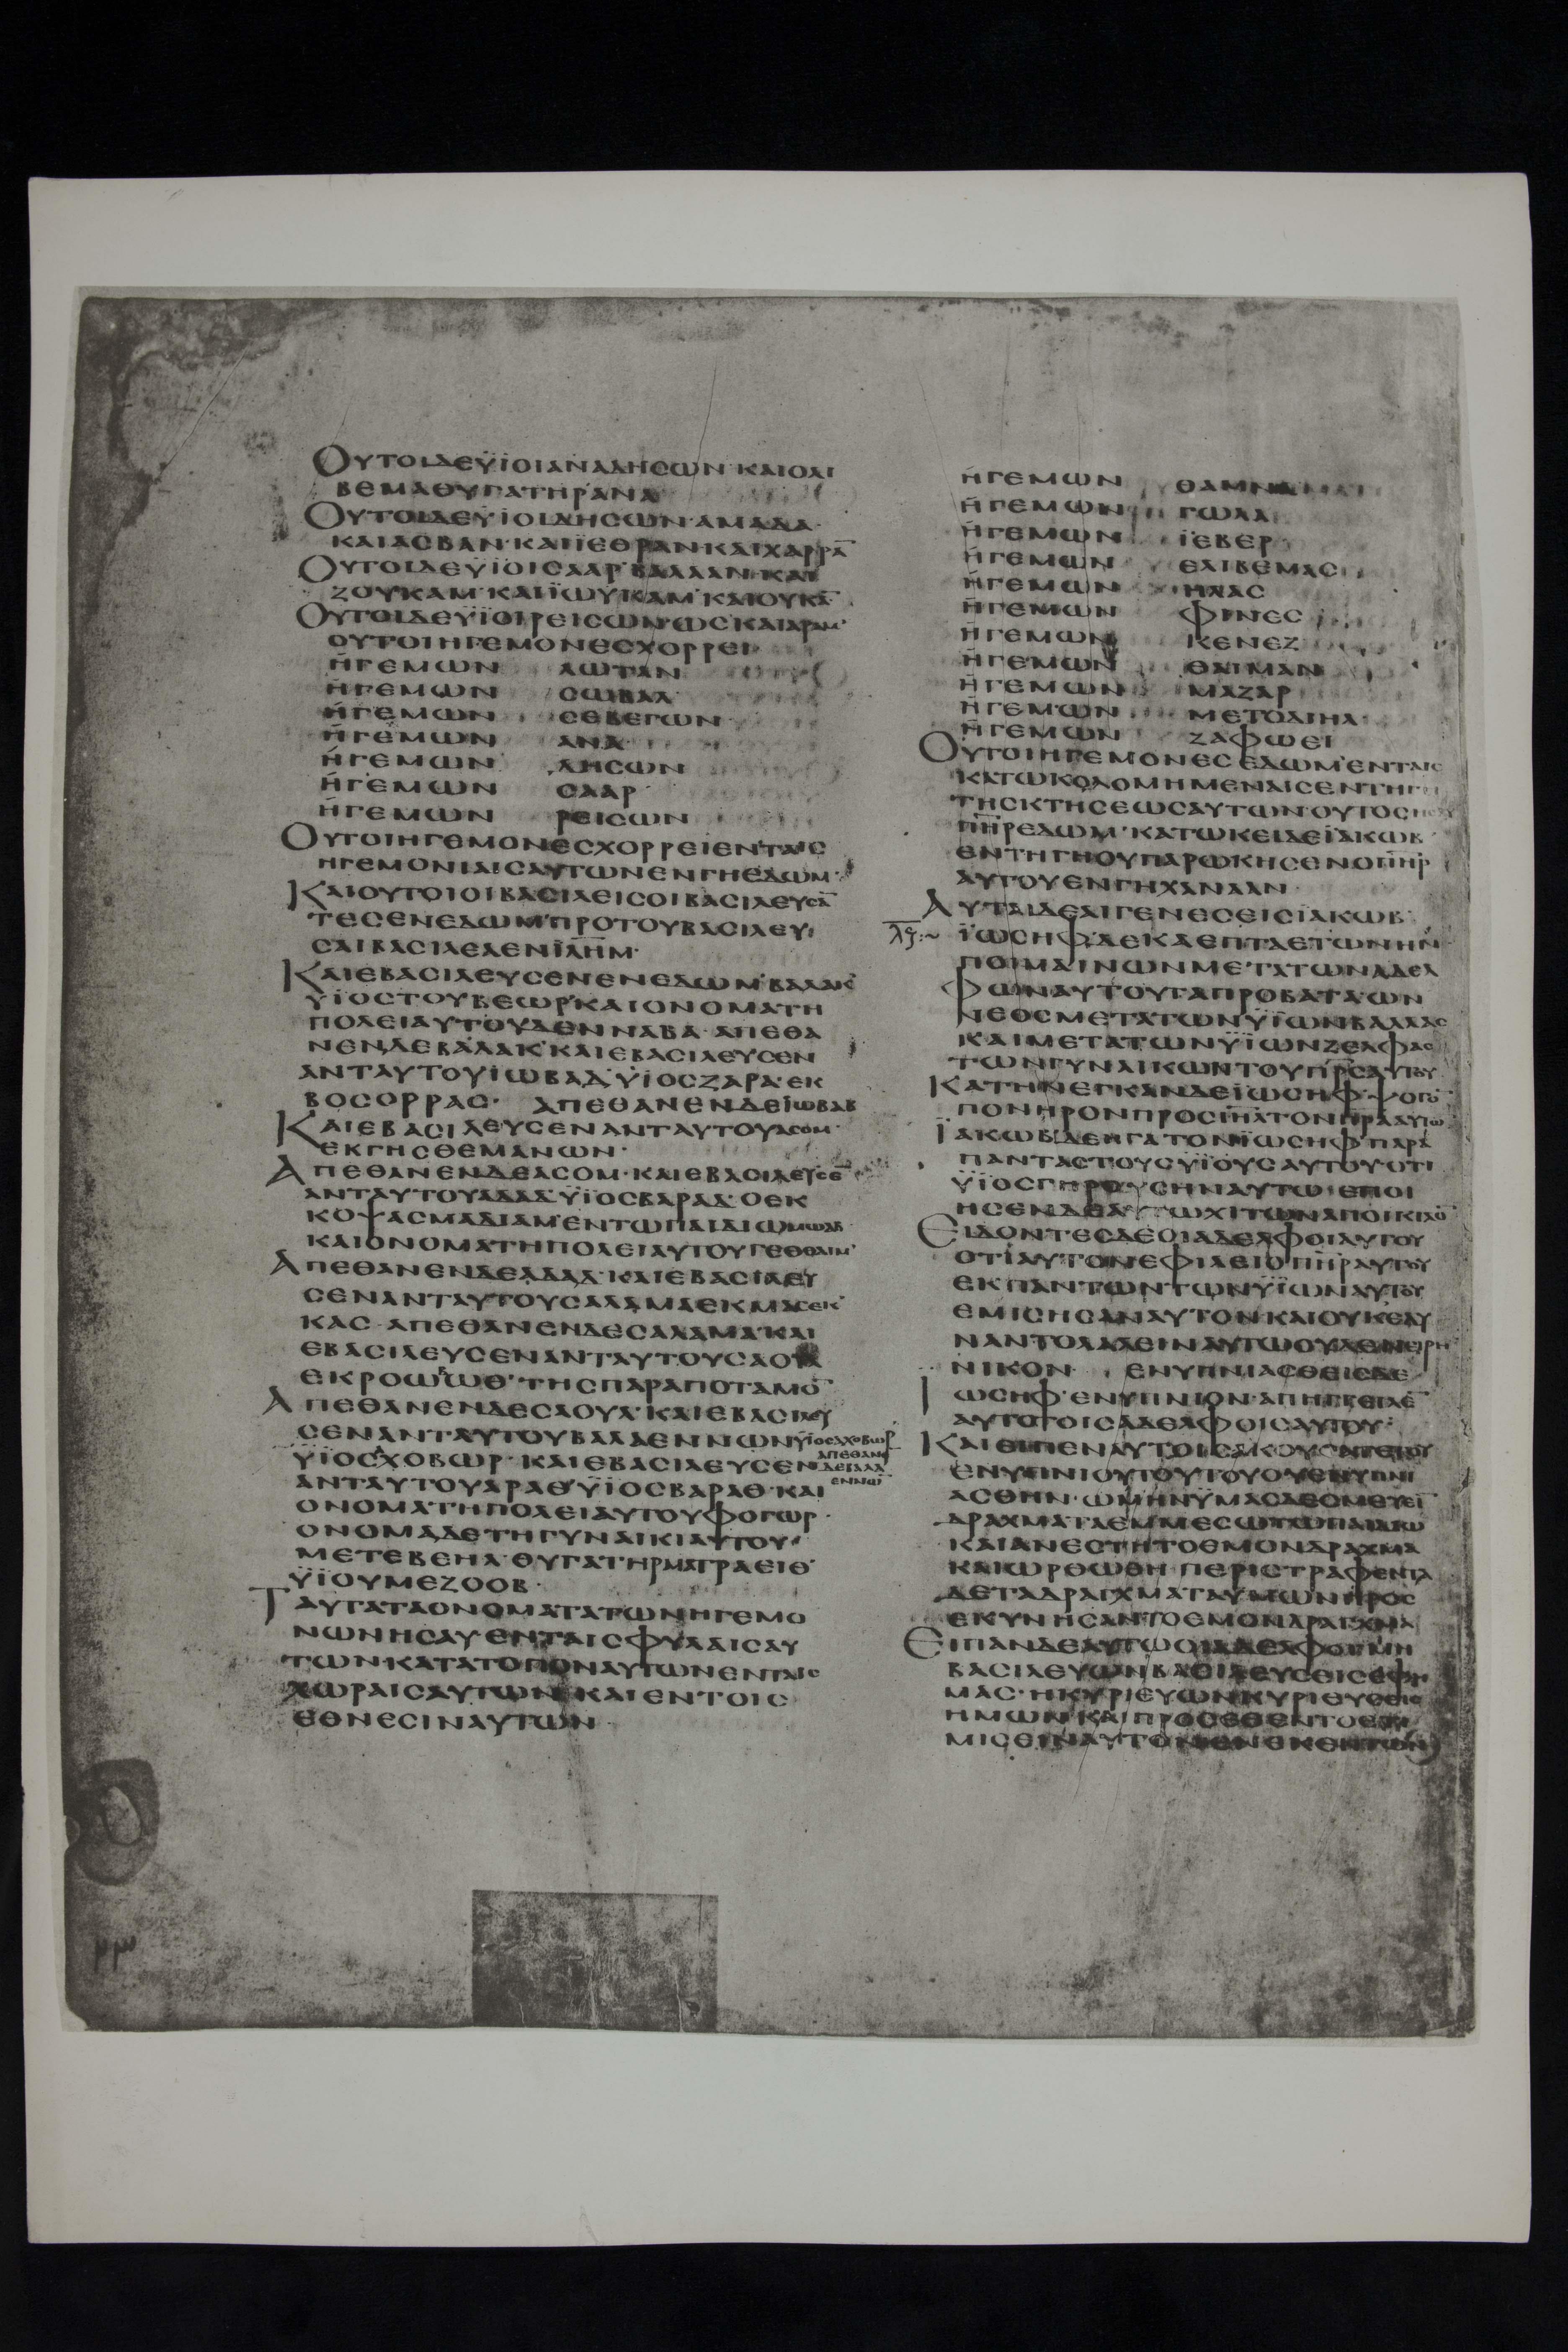 ΟΥΤΟΙΔΕΫΪΟΙΑΝΑΔΗϹΩΝ·ΚΑΙΟΛΙ
ΒΕΜΑΘΥΓΑΤΗΡΑΝΑ
ΟΥΤΟΙΔΕΫΪΟΙΔΗϹΩΝ·ΑΜΑΔΑ·
ΚΑΙΑϹΒΑΝ·ΚΑΙΪΕΘΡΑΝΚΑΙΧΑΡΡΑ̅
ΟΥΤΟΙΔΕΫΪΟΙϹΑΑΡ·ΒΑΛΑΑΝ·ΚΑΙ
ΖΟΥΚΑΜ·ΚΑΙΪΩΥΚΑΜ·ΚΑΙΟΥΚΑ̅
ΟΥΤΟΙΔΕΫΪΟΙΡΕΙϹΩΝ·ΩϹ·ΚΑΙΑΡΑΜ·
ΟΥΤΟΙΗΓΕΜΟΝΕϹΧΟΡΡΕΙ
ΗΓΕΜΩΝ ΛΩΤΑΝ
ΗΓΕΜΩΝ ϹΩΒΑΛ
ΗΓΕΜΩΝ ϹΕΒΕΓΩΝ
ΗΓΕΜΩΝ ΑΝΑ
ΗΓΕΜΩΝ ΔΗϹΩΝ
ΗΓΕΜΩΝ ϹΑΑΡ
ΗΓΕΜΩΝ ΡΕΙϹΩΝ
ΟΥΤΟΙΗΓΕΜΟΝΕϹΧΟΡΡΕΙΕΝΤΑΙϹ
ΗΓΕΜΟΝΙΑΙϹΑΥΤΩΝΕΝΓΗΕΔΩΜ·
ΚΑΙΟΥΤΟΙΟΙΒΑϹΙΛΕΙϹΟΙΒΑϹΙΛΕΥϹΑ̅
ΤΕϹΕΝΕΔΩΜ·ΠΡΟΤΟΥΒΑϹΙΛΕΥ
ϹΑΙΒΑϹΙΛΕΑΕΝΙ̅Λ̅Η̅Μ̅·
ΚΑΙΕΒΑϹΙΛΕΥϹΕΝΕΝΕΔΩΜ·ΒΑΛΑΚ
ΫΪΟϹΤΟΥΒΕΩΡ·ΚΑΙΟΝΟΜΑΤΗ
ΠΟΛΕΙΑΥΤΟΥΔΕΝΝΑΒΑ·ΑΠΕΘΑ
ΝΕΝΔΕΒΑΛΑΚ·ΚΑΙΕΒΑϹΙΛΕΥϹΕΝ
ΑΝΤΑΥΤΟΥΙΩΒΑΔ·ΫΪΟϹΖΑΡΑ·ΕΚ
ΒΟϹΟΡΡΑϹ· ΑΠΕΘΑΝΕΝΔΕΪΩΒΑΒ
ΚΑΙΕΒΑϹΙΛΕΥϹΕΝΑΝΤΑΥΤΟΥΑϹΟΜ·
ΕΚΓΗϹΘΕΜΑΝΩΝ·
ΑΠΕΘΑΝΕΝΔΕΑϹΟΜ·ΚΑΙΕΒΑϹΙΛΕΥϹΕ̅
ΑΝΤΑΥΤΟΥΑΔΑΔ·ΫΪΟϹΒΑΡΑΔ·ΟΕΚ
ΚΟΨΑϹΜΑΔΙΑΜ·ΕΝΤΩΠΑΙΔΙΩΜΩΑΒ
ΚΑΙΟΝΟΜΑΤΗΠΟΛΕΙΑΥΤΟΥΓΕΘΘΑΙΜ·
ΑΠΕΘΑΝΕΝΔΕΑΔΑΔ·ΚΑΙΕΒΑϹΙΛΕΥ
ϹΕΝΑΝΤΑΥΤΟΥϹΑΛΑΜΑΕΚΜΑϹΕΚ
ΚΑϹ·ΑΠΕΘΑΝΕΝΔΕϹΑΛΑΜΑ·ΚΑΙ
ΕΒΑϹΙΛΕΥϹΕΝΑΝΤΑΥΤΟΥϹΑΟΥΛ
ΕΚΡΟΩΒΩΘ·ΤΗϹΠΑΡΑΠΟΤΑΜΟ̅
ΑΠΕΘΑΝΕΝΔΕϹΑΟΥΛ·ΚΑΙΕΒΑϹΙΛΕΥ
ϹΕΝΑΝΤΑΥΤΟΥΒΑΛΛΕΝΝΩΝΫΪΟϹΑΧΟΒΩΡ
ΑΠΕΘΑΝΕ̅
ΫΪΟϹΑΧΟΒΩΡ·ΚΑΙΕΒΑϹΙΛΕΥϹΕΝ
ΔΕΒΑΛΛ
ΕΝΝΩ̅
ΑΝΤΑΥΤΟΥΑΡΑΘ·ΫΪΟϹΒΑΡΑΘ·ΚΑΙ
ΟΝΟΜΑΤΗΠΟΛΕΙΑΥΤΟΥΦΟΓΩΡ·
ΟΝΟΜΑΔΕΤΗΓΥΝΑΙΚΙΑΥΤΟΥ·
ΜΕΤΕΒΕΗΛ·ΘΥΓΑΤΗΡΜΑΤΡΑΕΙΘ·
ΫΪΟΥΜΕΖΟΟΒ·
ΤΑΥΤΑΤΑΟΝΟΜΑΤΑΤΩΝΗΓΕΜΟ
ΝΩΝΗϹΑΥΕΝΤΑΙϹΦΥΛΑΙϹΑΥ
ΤΩΝΚΑΤΑΤΟΠΟΝΑΥΤΩΝΕΝΤΑΙϹ
ΧΩΡΑΙϹΑΥΤΩΝ·ΚΑΙΕΝΤΟΙϹ
ΕΘΝΕϹΙΝΑΥΤΩΝ
ΗΓΕΜΩΝ ΘΑΜΝΑ
ΗΓΕΜΩΝ ΓΩΛΑ
ΗΓΕΜΩΝ ΪΕΒΕΡ
ΗΓΕΜΩΝ ΕΛΙΒΕΜΑϹ
ΗΓΕΜΩΝ ΗΛΑϹ
ΗΓΕΜΩΝ ΦΙΝΕϹ
ΗΓΕΜΩΝ ΚΕΝΕΖ
ΗΓΕΜΩΝ ΘΑΙΜΑΝ
ΗΓΕΜΩΝ ΜΑΖΑΡ
ΗΓΕΜΩΝ ΜΕΤΟΔΙΗΛ
ΗΓΕΜΩΝ ΖΑΦΩΕΙ
ΟΥΤΟΙΗΓΕΜΟΝΕϹΕΔΩΜ·ΕΝΤΑΙϹ
ΚΑΤΩΚΟΔΟΜΗΜΕΝΑΙϹΕΝΤΗΓΗ
ΤΗϹΚΤΗϹΕΩϹΑΥΤΩΝ·ΟΥΤΟϹΗϹΑΥ
Π̅Η̅Ρ̅ΕΔΩΜ·ΚΑΤΩΚΕΙΔΕΪΑΚΩΒ·
ΕΝΤΗΓΗΟΥΠΑΡΩΚΗϹΕΝΟΠ̅Η̅Ρ̅
ΑΥΤΟΥΕΝΓΗΧΑΝΑΑΝ·
ΑΥΤΑΙΔΕΑΙΓΕΝΕϹΕΙϹΪΑΚΩΒ·
λϛ:~ ΪΩϹΗΦΔΕΚΑΕΠΤΑΕΤΩΝΗΝ
ΠΟΙΜΑΙΝΩΝΜΕΤΑΤΩΝΑΔΕΛ
ΦΩΝΑΥΤΟΥΤΑΠΡΟΒΑΤΑΩΝ
ΝΕΟϹΜΕΤΑΤΩΝΫΪΩΝΒΑΛΛΑϹ
ΚΑΙΜΕΤΑΤΩΝΫΪΩΝΖΕΛΦΑϹ
ΤΩΝΓΥΝΑΙΚΩΝΤΟΥΠ̅Ρ̅Ϲ̅ΑΥΤΟΥ
ΚΑΤΗΝΕΓΚΑΝΔΕΪΩϹΗΦΨΟΓΟ̅
ΠΟΝΗΡΟΝΠΡΟϹΙ̅Η̅Λ̅ΤΟΝΠ̅Ρ̅Α̅ΑΥΤΩ̅
ΪΑΚΩΒΔΕΗΓΑΤΟΝΪΩϹΗΦΠΑΡΑ
ΠΑΝΤΑϹΤΟΥϹΫΪΟΥϹΑΥΤΟΥ·ΟΤΙ
ΫΪΟϹΓΗΡΟΥϹΗΝΑΥΤΩ·ΕΠΟΙ
ΗϹΕΝΔΕΑΥΤΩΧΙΤΩΝΑΠΟΙΚΙΛΟ̅
ΕΙΔΟΝΤΕϹΔΕΟΙΑΔΕΛΦΟΙΑΥΤΟΥ
ΟΤΙΑΥΤΟΝΕΦΙΛΕΙΟΠ̅Η̅Ρ̅ΑΥΤΟΥ
ΕΚΠΑΝΤΩΝΤΩΝΫΪΩΝΑΥΤΟΥ
ΕΜΙϹΗϹΑΝΑΥΤΟΝΚΑΙΟΥΚΕΔΥ
ΝΑΝΤΟΛΑΛΕΙΝΑΥΤΩΟΥΔΕΝΕΙΡΗ
ΝΙΚΟΝ· ΕΝΥΠΝΙΑϹΘΕΙϹΔΕ
ΙΩϹΗΦ·ΕΝΥΠΝΙΟΝ·ΑΠΗΓΓΕΙΛΕ̅
ΑΥΤΟΤΟΙϹΑΔΕΛΦΟΙϹΑΥΤΟΥ·
ΚΑΙΕΙΠΕΝΑΥΤΟΙϹΑΚΟΥϹΑΤΕΤΟΥ
ΕΝΥΠΝΙΟΥΤΟΥΤΟΥΟΥΕΝΥΠΝΙ
ΑϹΘΗΝ·ΩΜΗΝΫΜΑϹΔΕϹΜΕΥΕΙ̅
ΔΡΑΧΜΑΤΑΕΜΜΕϹΩΤΩΠΑΙΔΙΩ
ΚΑΙΑΝΕϹΤΗΤΟΕΜΟΝΔΡΑΧΜΑ
ΚΑΙΩΡΘΩΘΗ·ΠΕΡΙϹΤΡΑΦΕΝΤΑ
ΔΕΤΑΔΡΑΓΧΜΑΤΑΥΜΩΝΠΡΟϹ
ΕΚΥΝΗϹΑΝΤΟΕΜΟΝΔΡΑΓΧΜΑ
ΕΙΠΑΝΔΕΑΥΤΩΟΙΑΔΕΛΦΟΙΜΗ
ΒΑϹΙΛΕΥΩΝΒΑϹΙΛΕΥϹΕΙϹΕΦΗ
ΜΑϹ·ΗΚΥΡΙΕΥΩΝΚΥΡΙΕΥϹΕΙϹ
ΗΜΩΝ·ΚΑΙΠΡΟϹΕΘΕΝΤΟΕΤΙ
ΜΙϹΕΙΝΑΥΤΟΝΕΝΕΚΕΝΤΩΝ